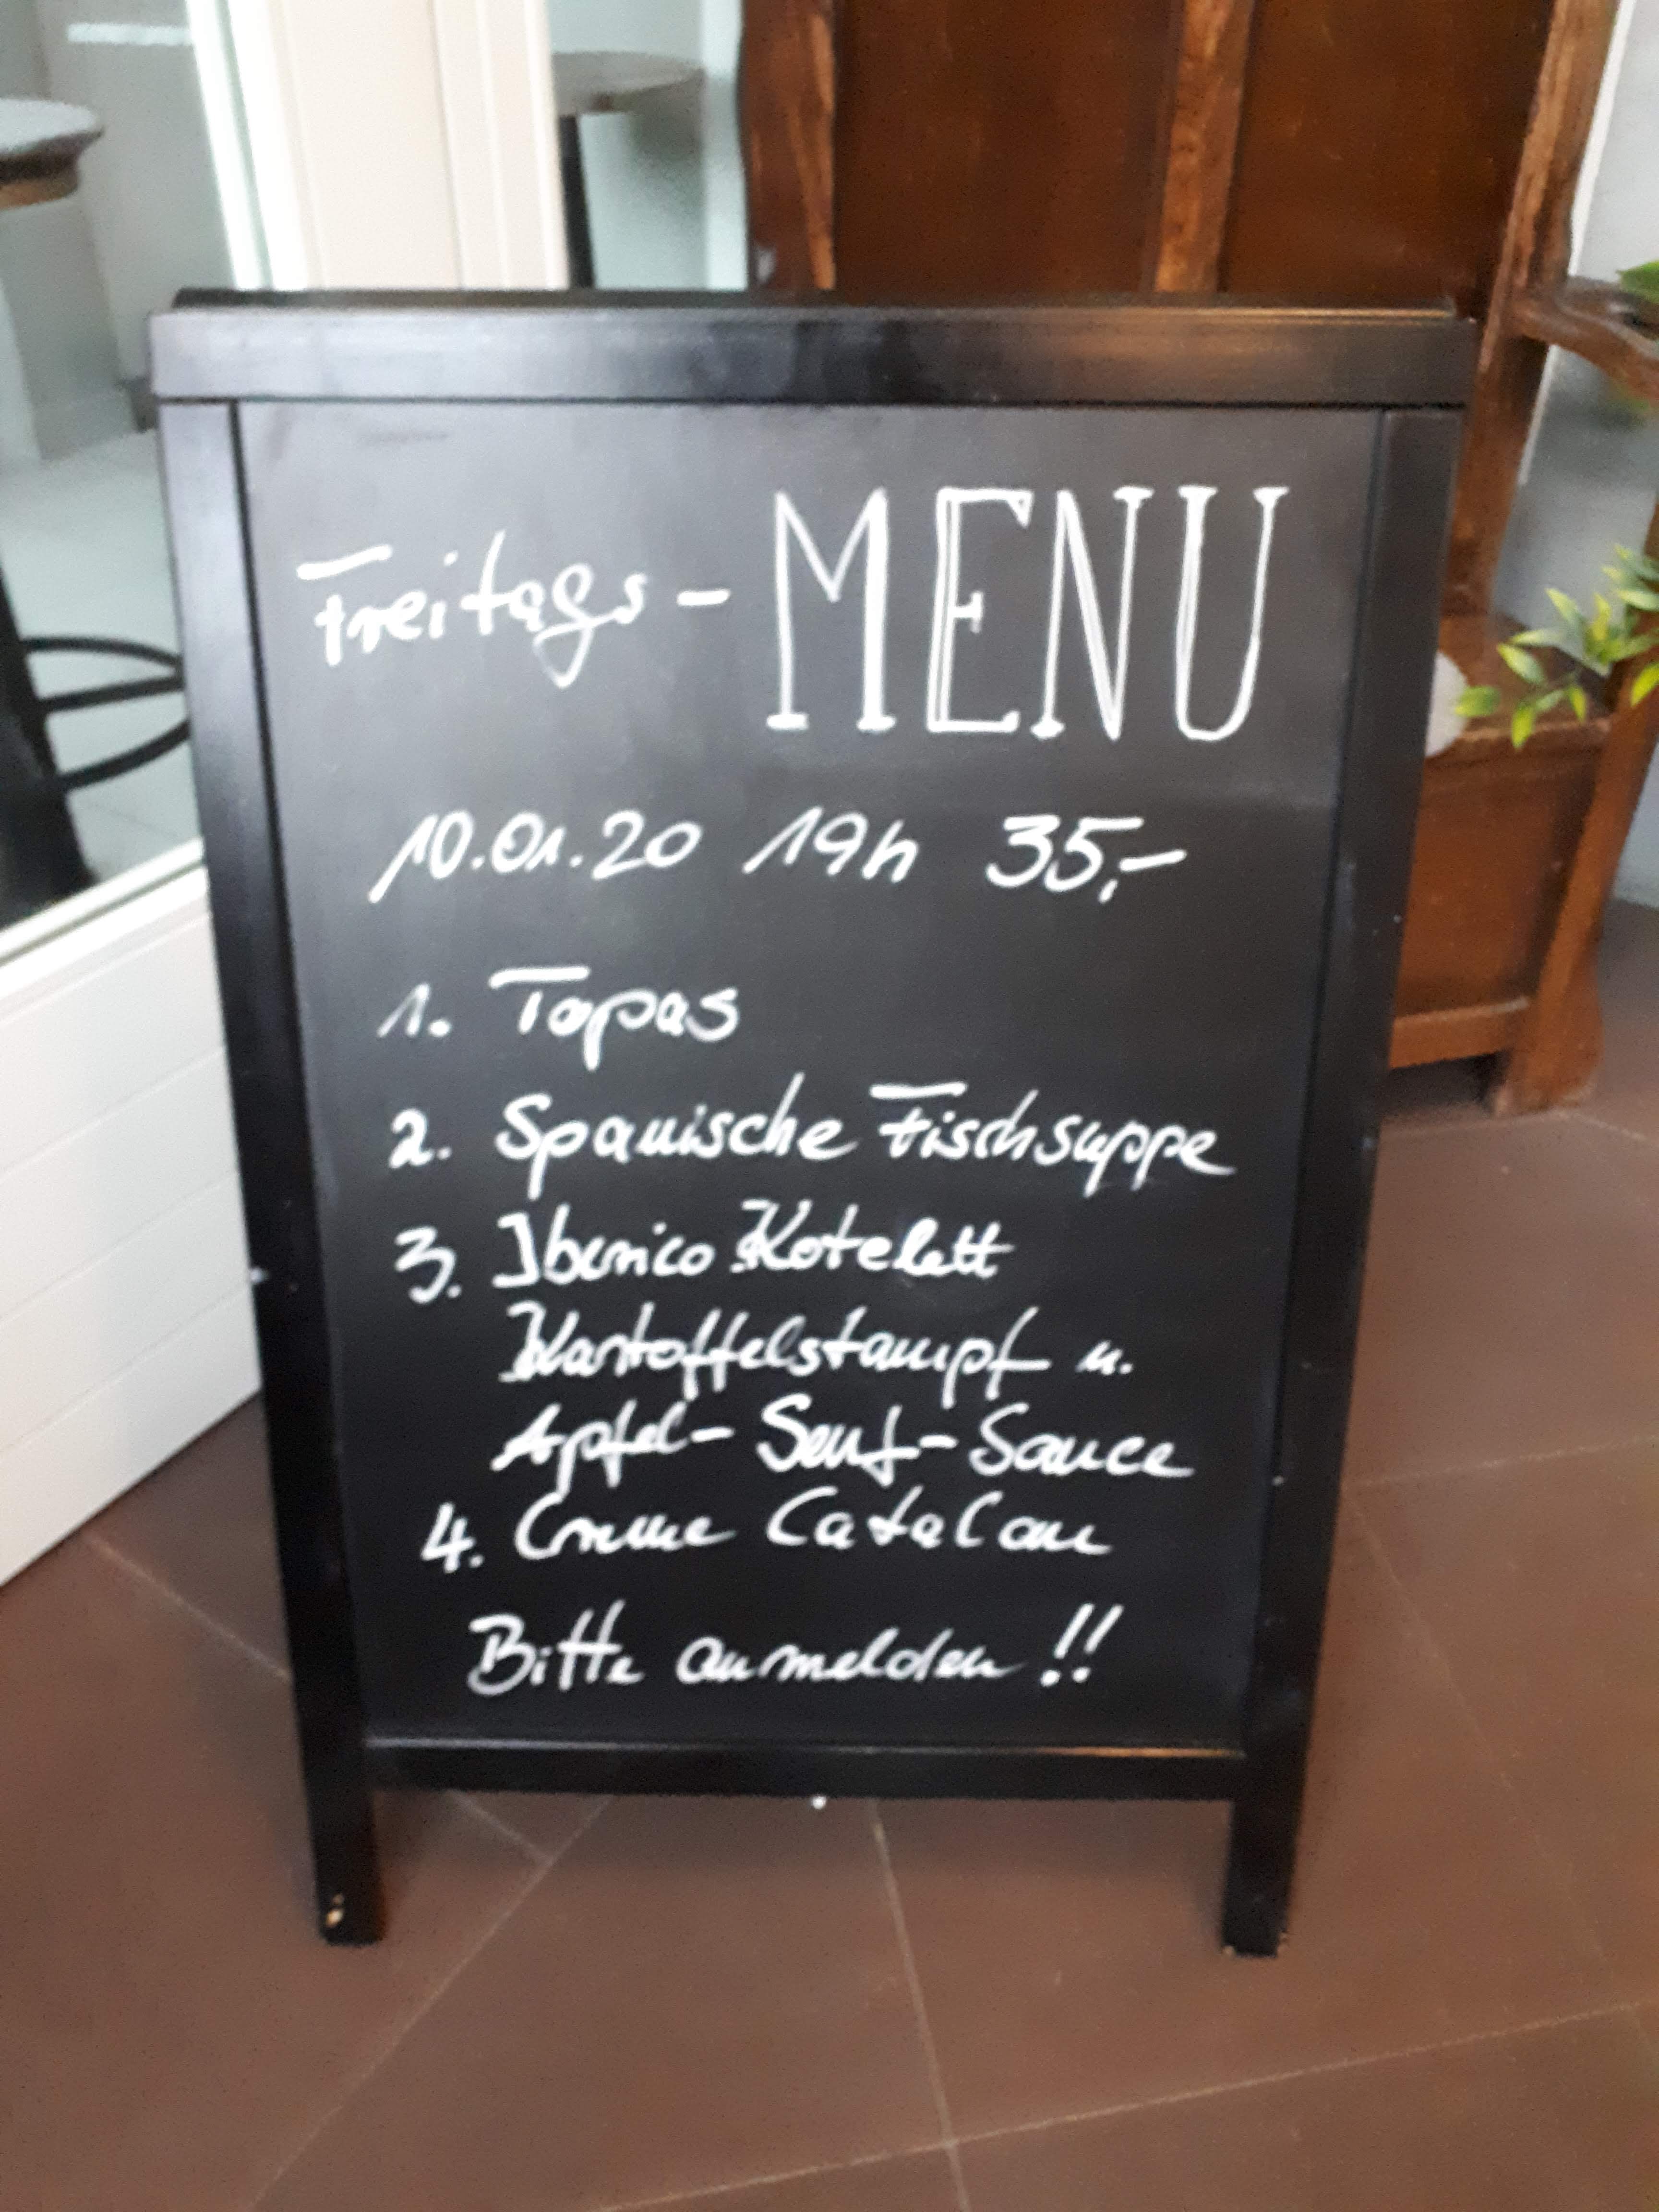 Freitags - MENU
10.01.20 19h 35,-
1. Tapas
2. Spanische Fischsuppe
3. Iberico Kotelett
Kartoffelstampf u.
Apfel- Senf- Sauce
4. Creme Catalan
Bitte anmelden !!